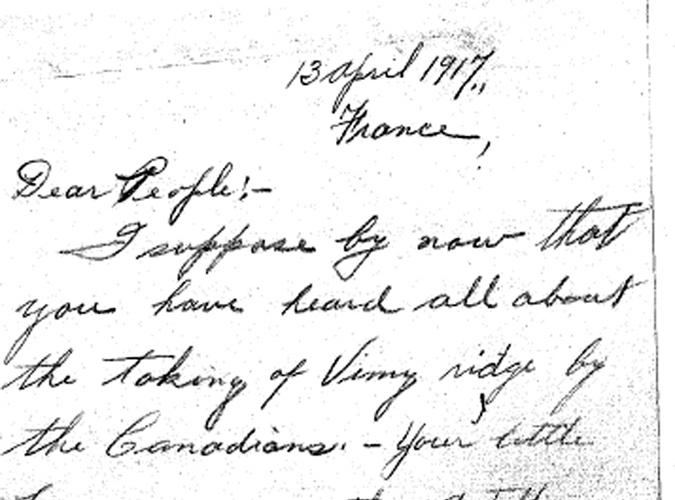 13 April 1917,,
France,
Dear People:-
I suppose by now that
you have heard all about
the taking of Vimy ridge by
the Canadians. - Your little